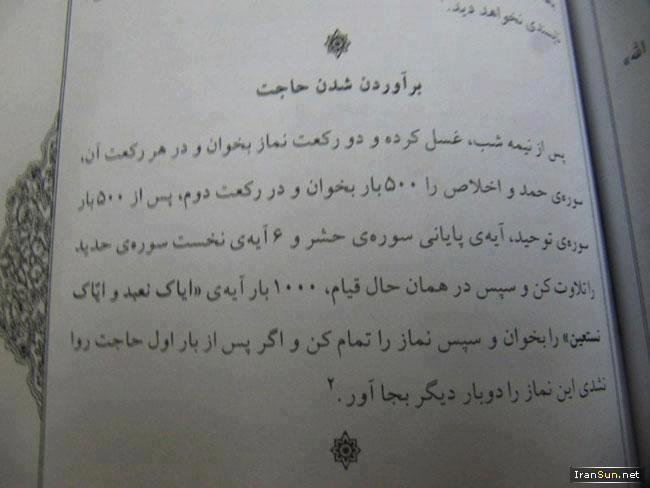 پسندی نخواهد دید.
الله»
برآوردن شدن حاجت
پس از نیمه شب، غسل کرده و دو رکعت نماز بخوان و در هر رکعت آن،
سوره‌ی حمد و اخلاص را ۵۰۰ بار بخوان و در رکعت دوم، پس از ۵۰۰ بار
سوره‌ی توحید، آیه‌ی پایانی سوره‌ی حشر و ۶ آیه‌ی نخست سوره‌ی حدید
را تلاوت کن و سپس در همان حال قیام، ۱۰۰۰ بار آیه‌ی «ایاک نعبد و ایّاک
نستعین» را بخوان و سپس نماز را تمام کن و اگر پس از بار اول حاجت روا
نشدی این نماز را دوبار دیگر بجا آور.۲
IranSun.net